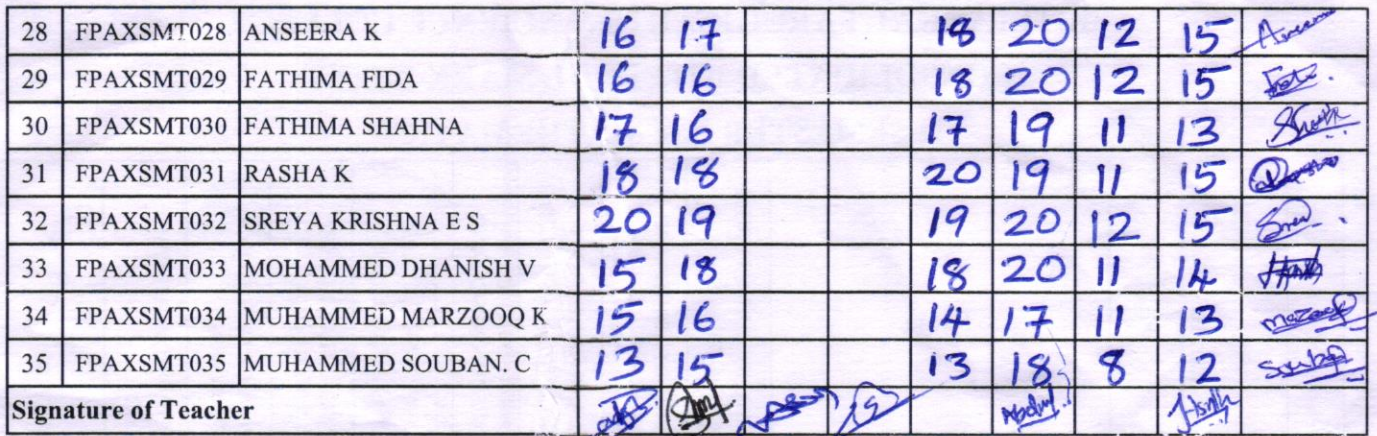 28 FPAXSMT028 ANSEERA K 16 17 18 20 12 15
29 FPAXSMT029 FATHIMA FIDA 16 16 18 20 12 15
30 FPAXSMT030 FATHIMA SHAHNA 17 16 17 19 11 13
31 FPAXSMT031 RASHA K 18 18 20 19 11 15
32 FPAXSMT032 SREYA KRISHNA E S 20 19 19 20 12 15
33 FPAXSMT033 MOHAMMED DHANISH V 15 18 18 20 11 14
34 FPAXSMT034 MUHAMMED MARZOOQ K 15 16 14 17 11 13
35 FPAXSMT035 MUHAMMED SOUBAN. C 13 15 13 18 8 12
Signature of Teacher